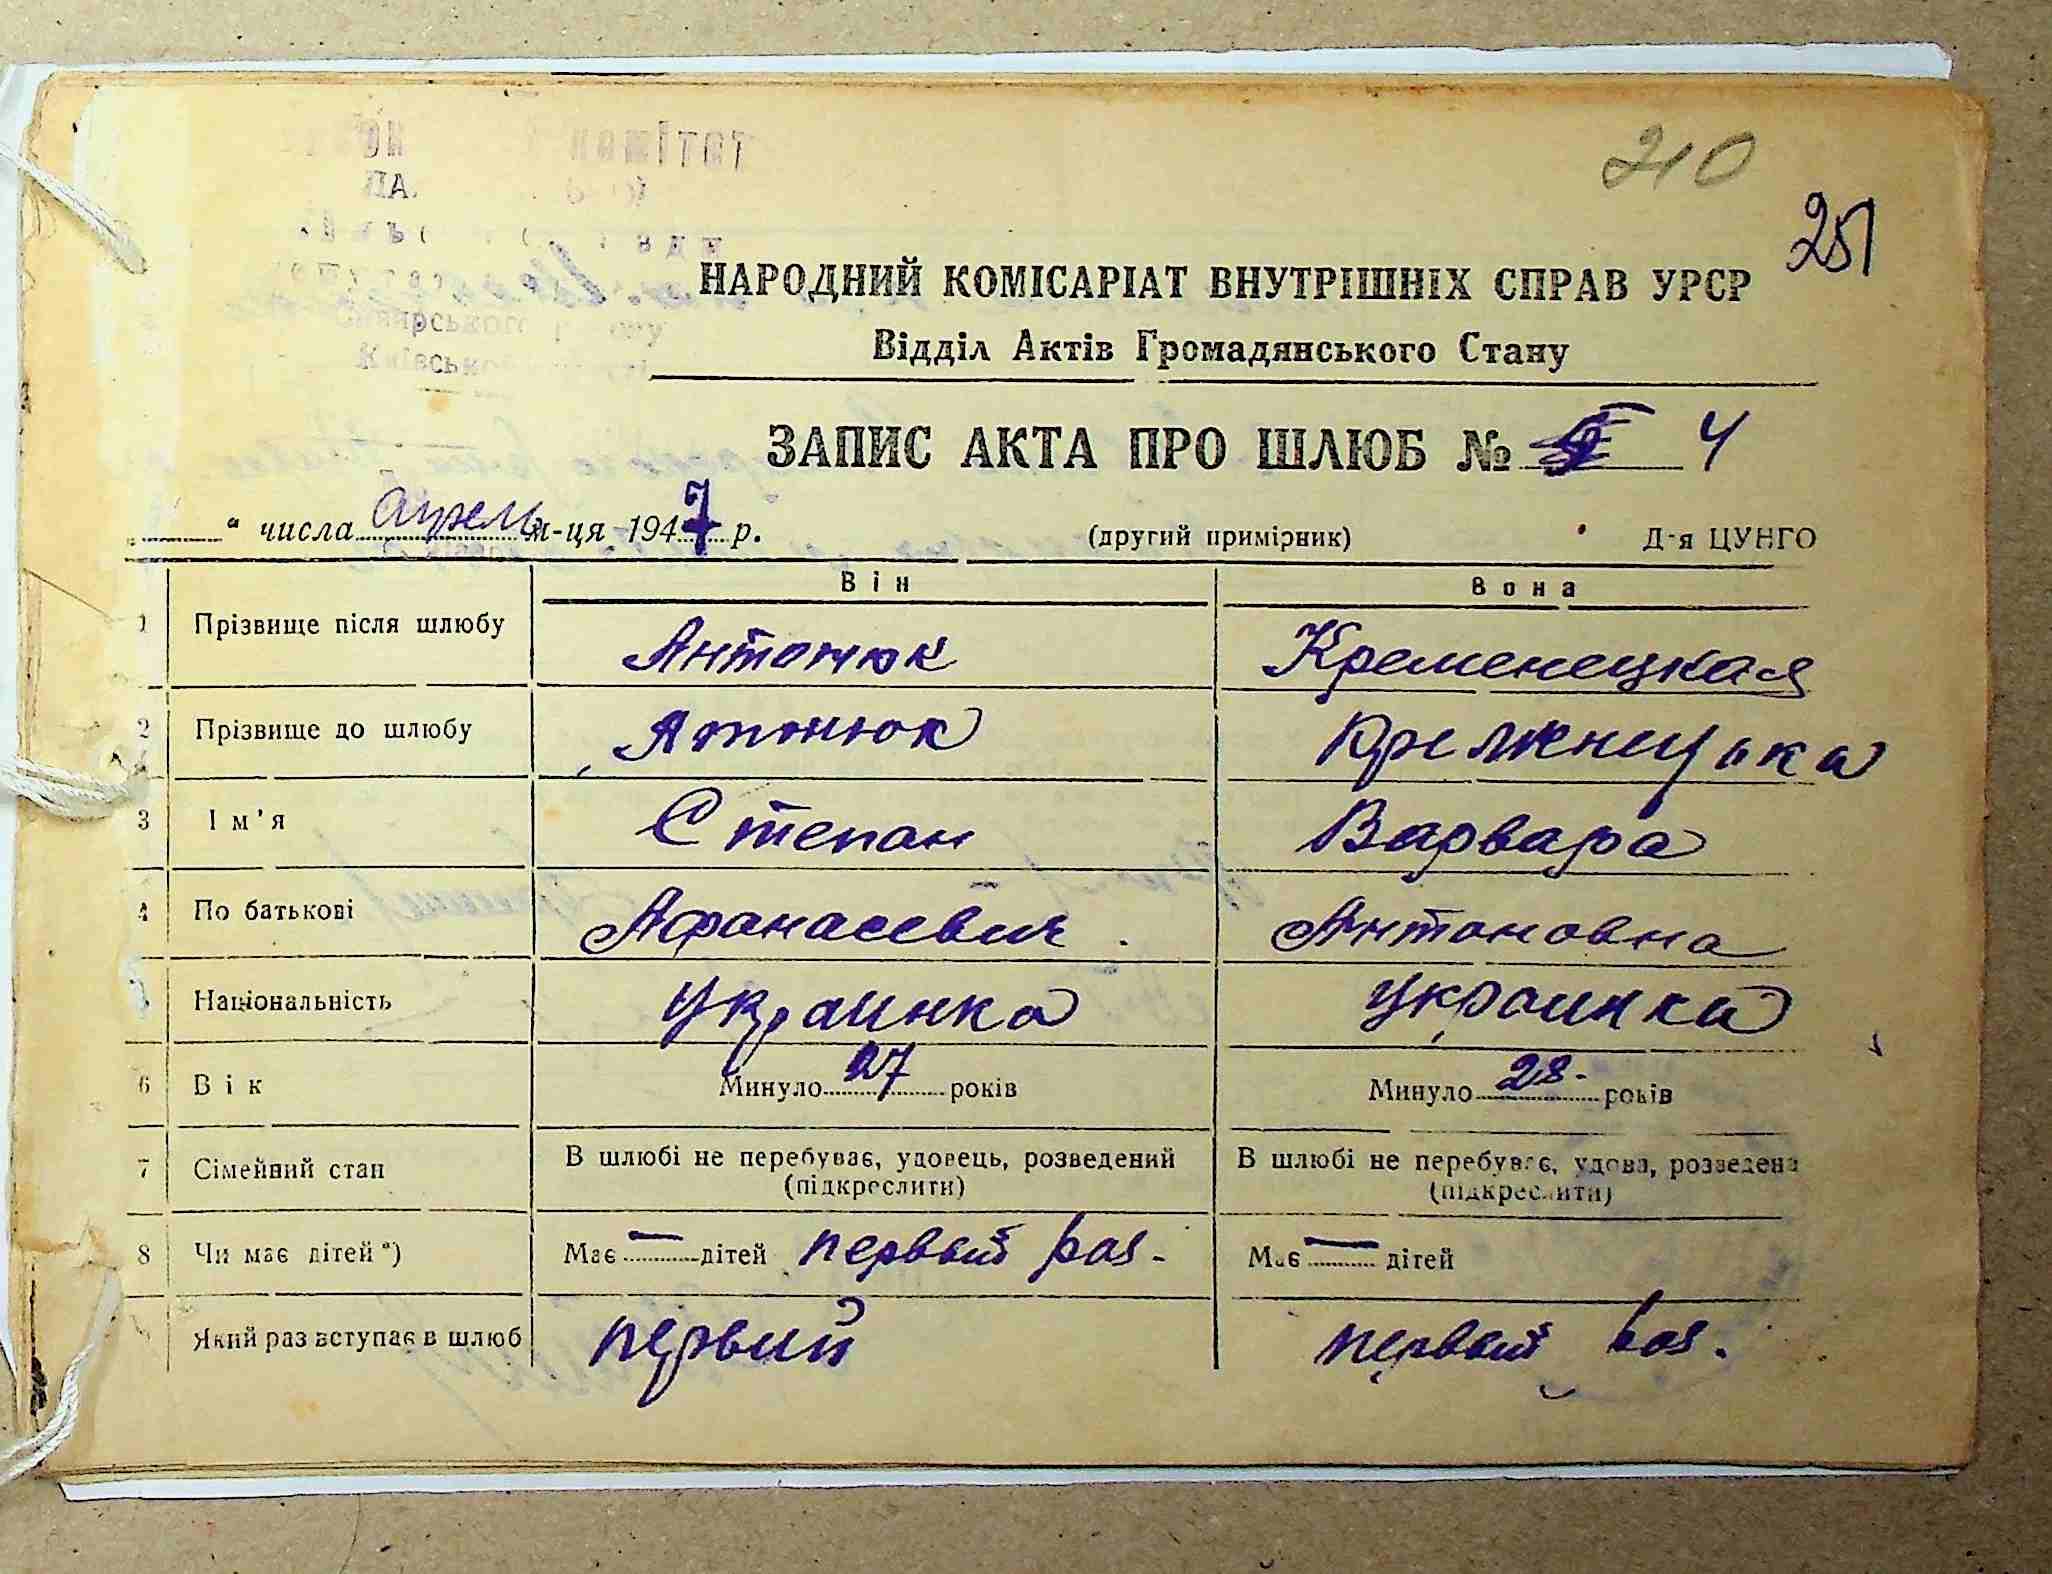 210
251
НАРОДНИЙ КОМІСАРІАТ ВНУТРІШНІХ СПРАВ УРСР
Відділ Актів Громадянського Стану
ЗАПИС АКТА ПРО ШЛЮБ № 4
" числа апрель м-ця 1947 р. (другий примірник) Д-я ЦУНГО
Він Вона
1 Прізвище після шлюбу Антонюк Кременецкая
2 Прізвище до шлюбу Атонюк
3 Ім'я Степан Варвара
4 По батькові Афанасевич Антоновна
5 Національність украинка украинка
6 Вік Минуло 27 років Минуло 28 років
7 Сімейний стан В шлюбі не перебуває, удовець, розведений (підкреслити) В шлюбі не перебуває, удова, розведена (підкреслити)
8 Чи має дітей*) Має — дітей первый раз - Має — дітей
Який раз вступає в шлюб первий первый раз.